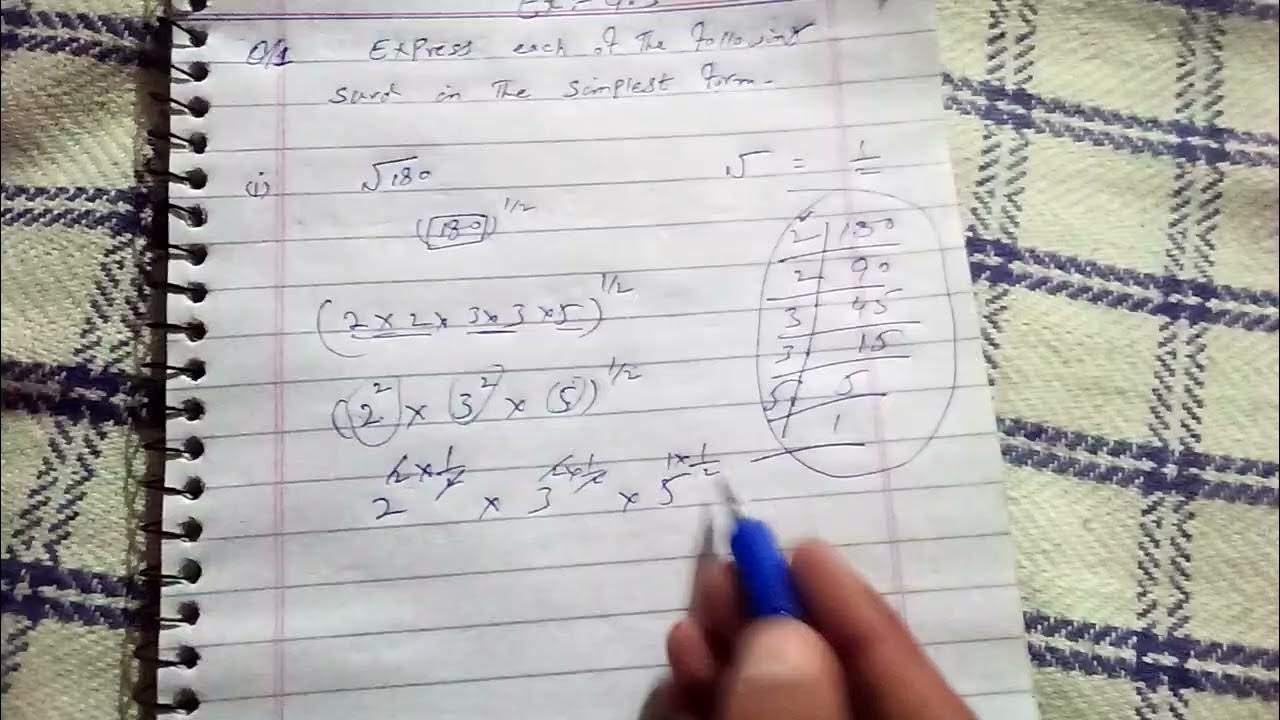 Q1 Express each of the following
surd in the simplest form.
(i) √180
√ = 1
(180)^1/2
(2 x 2 x 3 x 3 x 5)^1/2
((2^2) x (3^2) x (5))^1/2
2^2x1/2 x 3^2x1/2 x 5^1x1/2
2 | 180
2 | 90
3 | 45
3 | 15
5 | 5
1